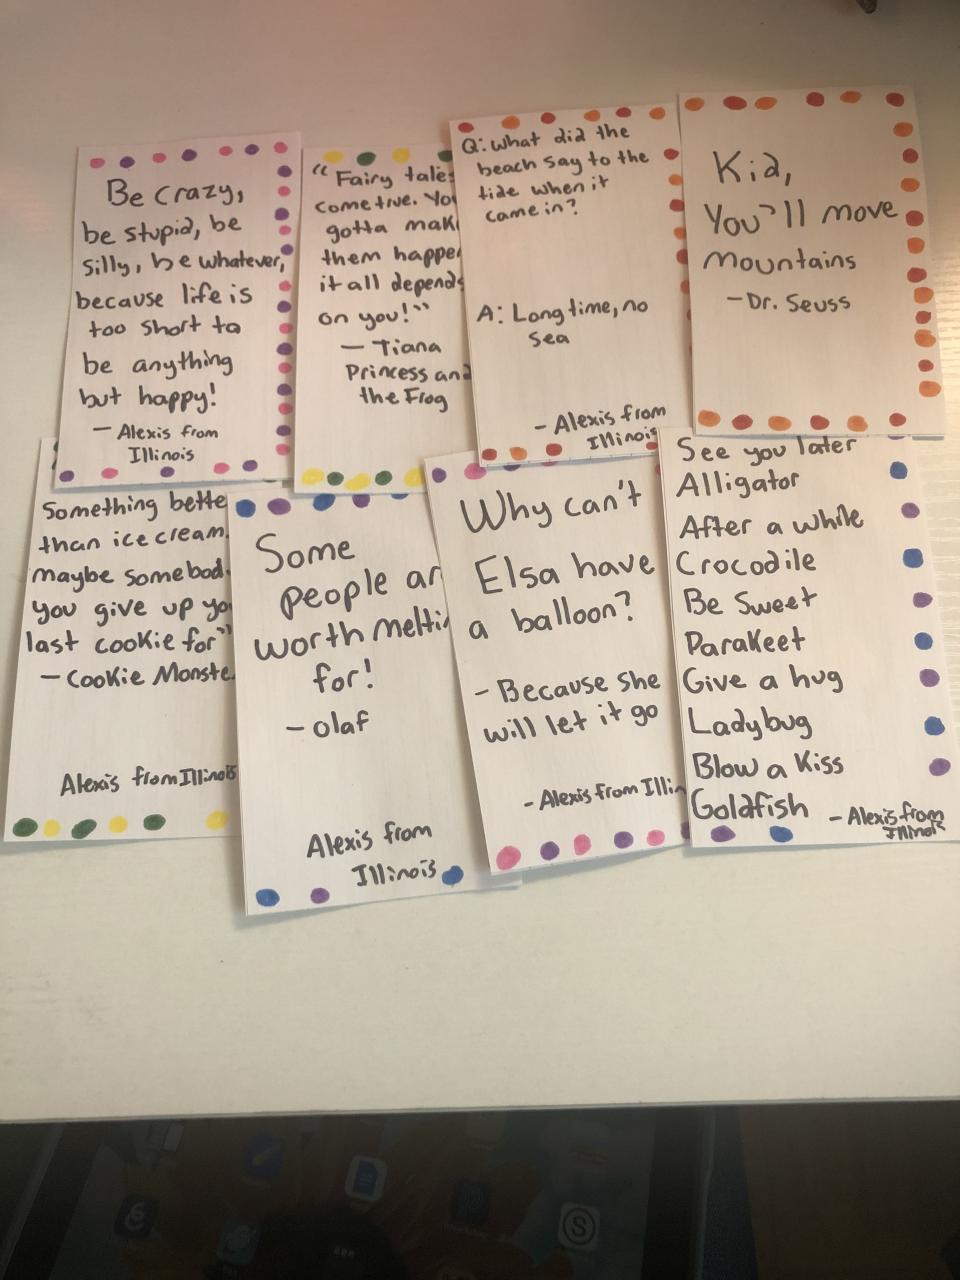 Be crazy,
be stupid, be
silly, be whatever,
because life is
too short to
be anything
but happy!
- Alexis from
Illinois
"Fairy tales
come true. You
gotta make
them happen
it all depends
on you!"
- Tiana
Princess and
the Frog
Q: What did the
beach say to the
tide when it
came in?
A: Long time, no
sea
- Alexis from
Illinois
Kid,
You'll move
mountains
- Dr. Seuss
Something bette
than ice cream.
maybe somebod
you give up yo
last cookie for"
- Cookie Monste
Alexis from Illinois
Some
people ar
worth melti
for!
- Olaf
Alexis from
Illinois
Why can't
Elsa have
a balloon?
- Because she
will let it go
- Alexis from Illin
See you later
Alligator
After a while
Crocodile
Be Sweet
Parakeet
Give a hug
Ladybug
Blow a Kiss
Goldfish - Alexis from
Illinois